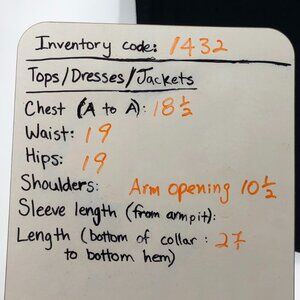 Inventory code: 1432
Tops/Dresses/Jackets
Chest (A to A): 18 1/2
Waist: 19
Hips: 19
Shoulders: Arm opening 10 1/2
Sleeve length (from armpit):
Length (bottom of collar :
to bottom hem)